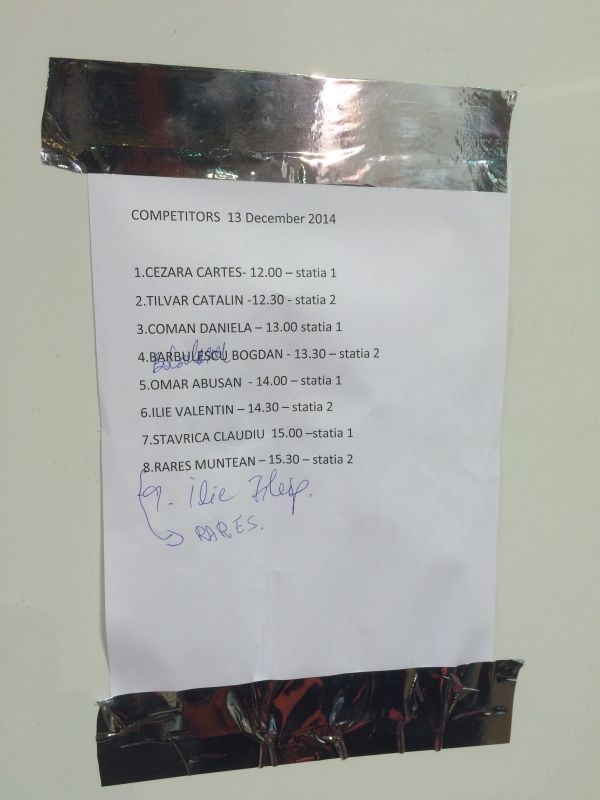 COMPETITORS 13 December 2014
1.CEZARA CARTES- 12.00 – statia 1
2.TILVAR CATALIN -12.30 - statia 2
3.COMAN DANIELA – 13.00 statia 1
4.BARBULESCU BOGDAN - 13.30 – statia 2
5.OMAR ABUSAN - 14.00 – statia 1
6.ILIE VALENTIN – 14.30 – statia 2
7.STAVRICA CLAUDIU 15.00 –statia 1
8.RARES MUNTEAN – 15.30 – statia 2
9. Ilie
RARES.